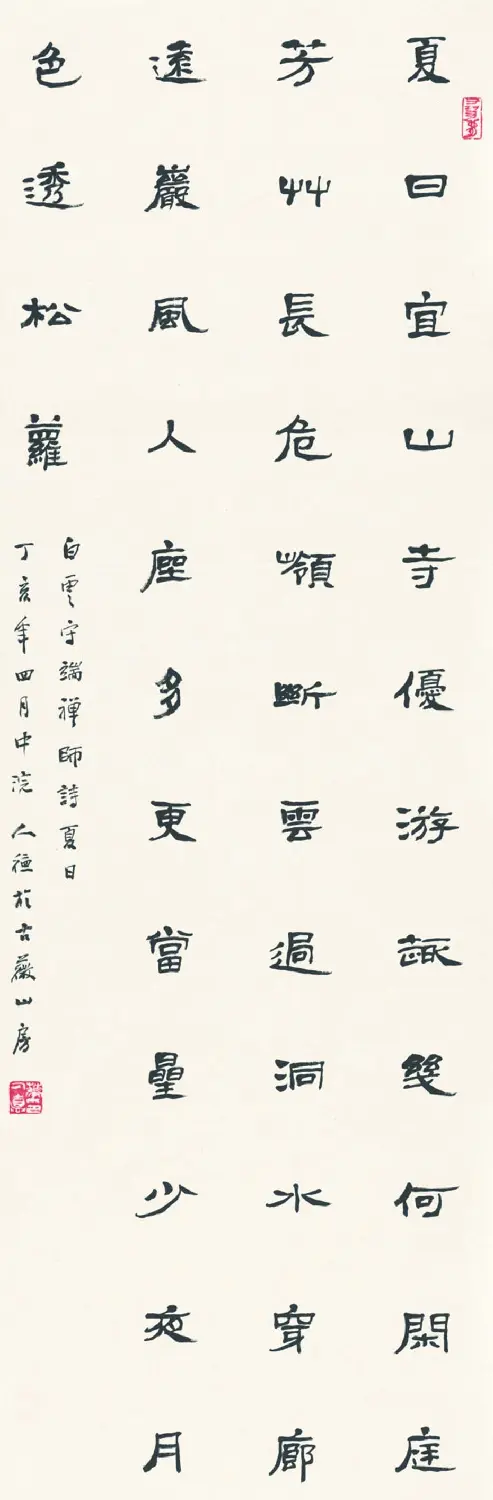 夏日宜山寺優游趣幾何閑庭
芳艸長危嶺斷雲過洞水穿廊
遠巖風人座多更當星少夜月
色透松蘿
白雲守端禪師詩夏日
丁亥年四月中浣 人穜於古薇山房